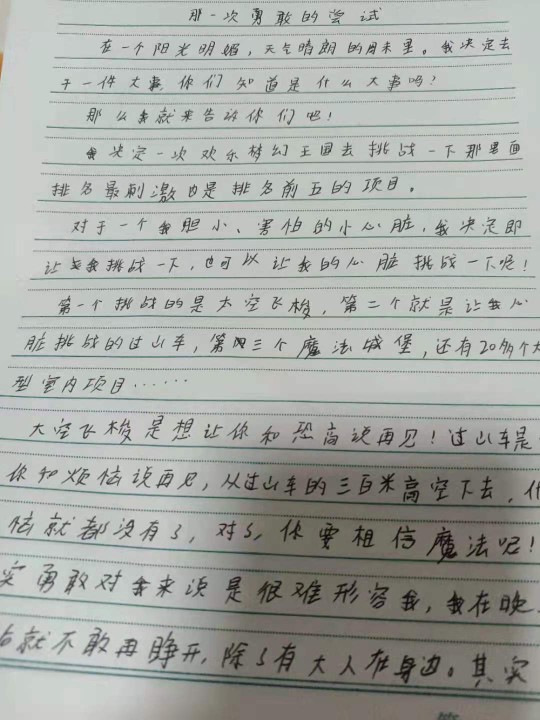 那一次勇敢的尝试
在一个阳光明媚,天气晴朗的周末里。我决定去
干一件大事,你们知道是什么大事吗?
那么我就来告诉你们吧!
我决定一次欢乐梦幻王国去挑战一下那里面
排名最刺激也是排名前五的项目。
对于一个我胆小、害怕的小心脏,我决定即
让我挑战一下,也可以让我的心脏挑战一下呢!
第一个挑战的是太空飞梭,第二个就是让我心
脏挑战的过山车,第三个魔法城堡,还有20多个大
型室内项目……
太空飞梭是想让你和恐高说再见!过山车是
你和烦恼说再见,从过山车的三百米高空下去,
恼就都没有了,对了,你要相信魔法呢!
实勇敢对我来说是很难形容我,我在晚
就不敢再睁开,除了有大人在身边。其实